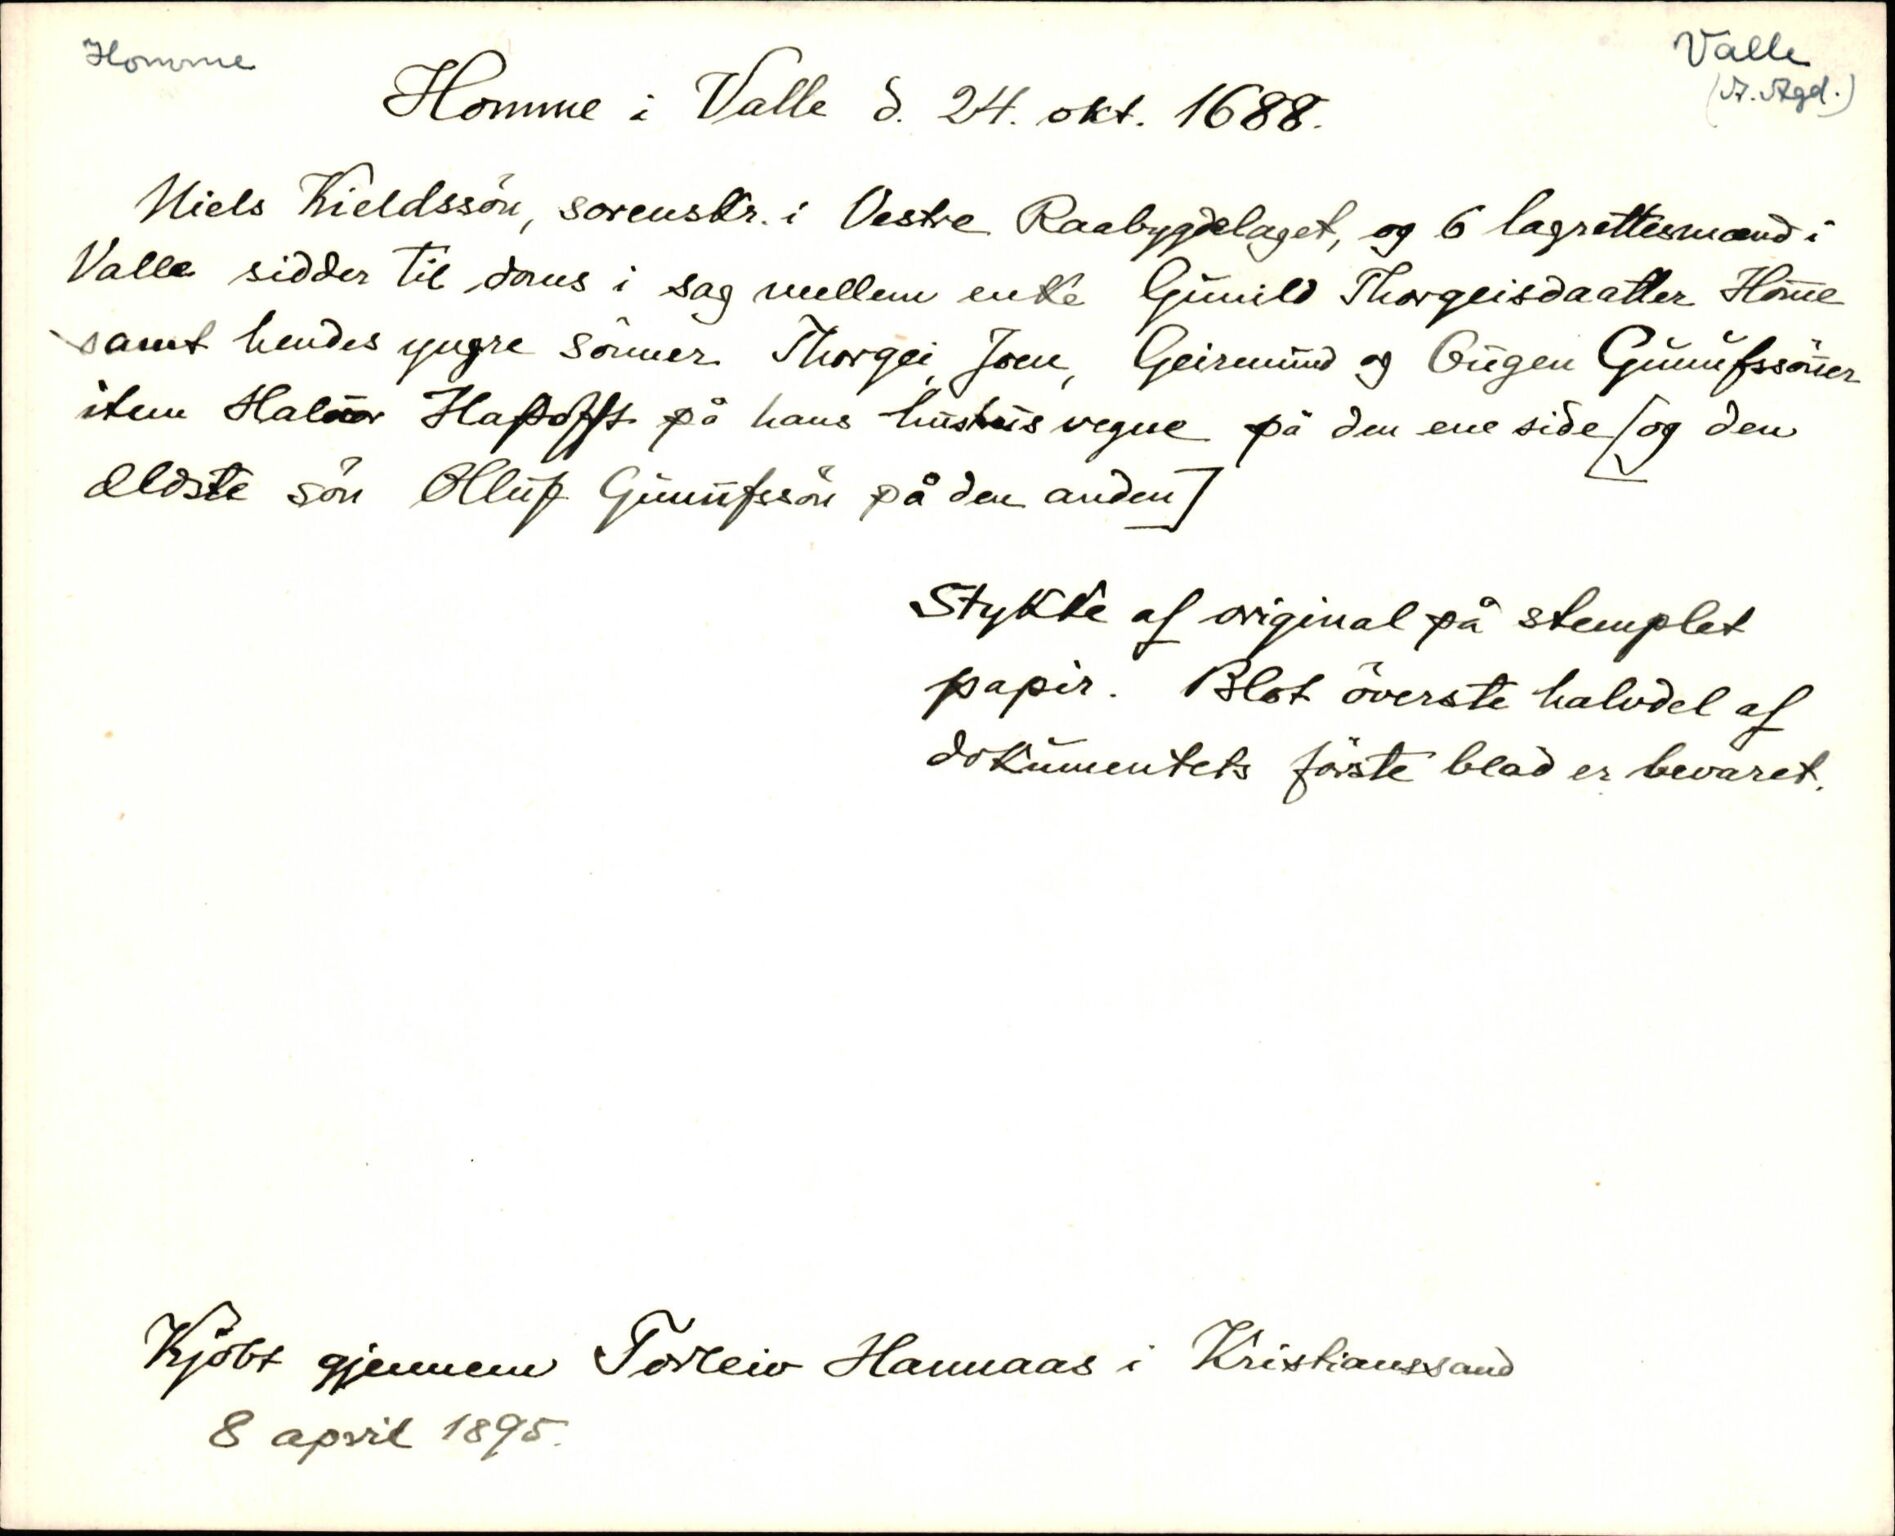 Homme
Valle
(A. Agd.)
Homme i Valle d. 24. okt. 1688.
Niels Kieldssön, sorenskr. i Vestre Raabygdelaget, og 6 lagrettesmænd i
Valle sidder til doms i sag mellem enke Gunild Thorgeisdaatter Hom̄e
samt hendes yngre sönner Thorgei, Joen, Geirmund og Ougen Gunufssön̄er
item Halvor Haftofft på hans hustrus vegne på den ene side [og den
ældste sön Olluf Gunufssön på den anden]
Stykke af original på stemplet
papir. Blot överste halvdel af
dokumentets förste blad er bevaret.
Kjöbt gjennem Torleiv Hannaas i Kristianssand
8 april 1895.